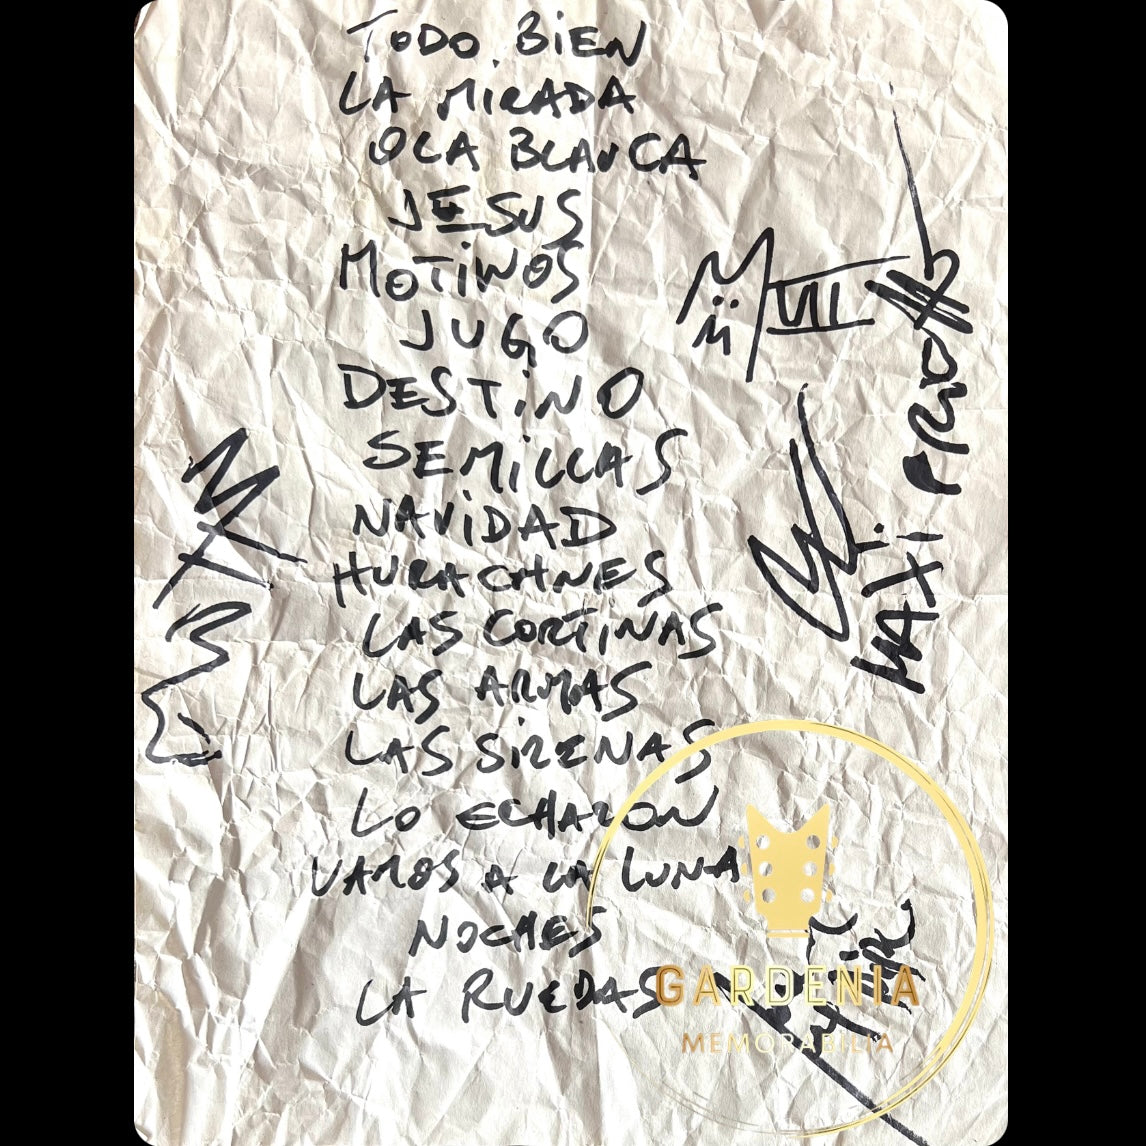 TODO BIEN
LA MIRADA
OLA BLANCA
JESUS
MOTIVOS
JUGO
DESTINO
SEMILLAS
NAVIDAD
HURACANES
LAS CORTINAS
LAS ARMAS
LAS SIRENAS
LO ECHARON
VAMOS A LA LUNA
NOCHES
LA RUEDAS
MAXI PRIO
GARDENIA
MEMORABILIA